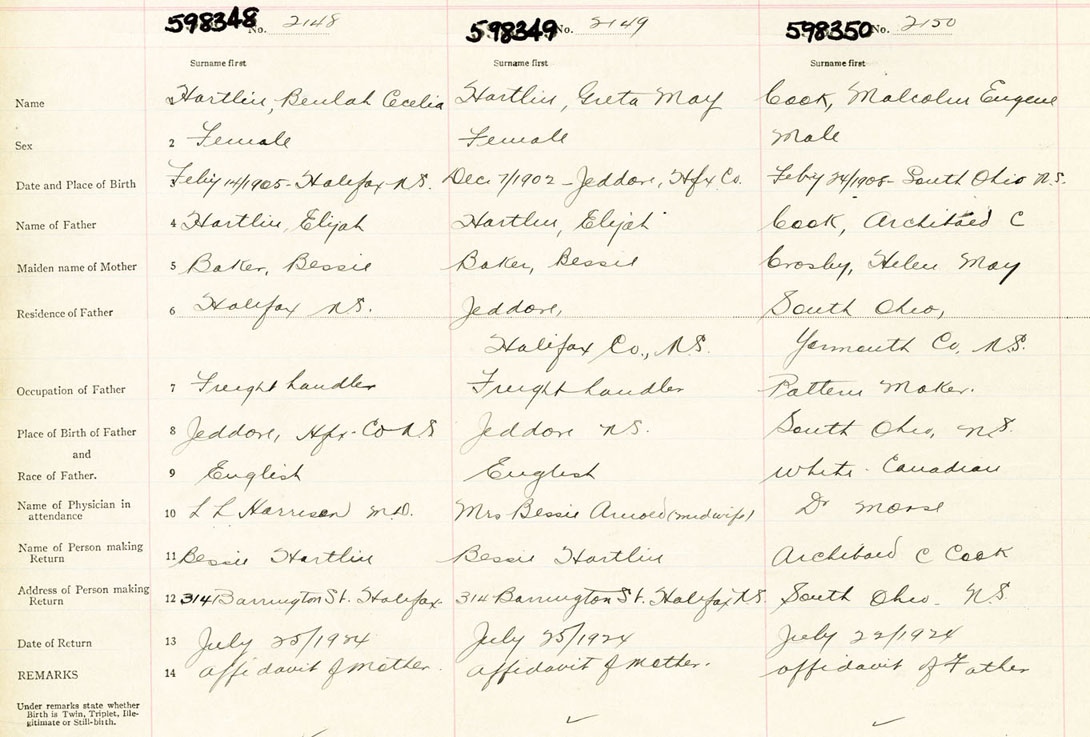 598348 No. 2148 598349 No. 2149 598350 No. 2150
Surname first Surname first Surname first
Name Hartlin, Beulah Cecelia Hartlin, Greta May Cook, Malcolm Eugene
Sex 2 Female Female Male
Date and Place of Birth Feby 14/1905 - Halifax N.S. Dec. 7/1902 - Jeddore, Hfx Co. Feby 24/1905 - South Ohio N.S.
Name of Father 4 Hartlin, Elijah Hartlin, Elijah Cook, Archibald C
Maiden name of Mother 5 Baker, Bessie Baker, Bessie Crosby, Helen May
Residence of Father 6 Halifax N.S. Jeddore, South Ohio,
Halifax Co., N.S. Yarmouth Co, N.S.
Occupation of Father 7 Freight handler Freight handler Pattern Maker.
Place of Birth of Father 8 Jeddore, Hfx. Co N.S Jeddore N.S. South Ohio, N.S.
and
Race of Father. 9 English English White - Canadian
Name of Physician in
attendance 10 L L Harrison M.D. Mrs Bessie Arnold (midwife) Dr Morse
Name of Person making
Return 11 Bessie Hartlin Bessie Hartlin Archibald C Cook
Address of Person making
Return 12 314 Barrington St. Halifax. 314 Barrington St. Halifax N.S. South Ohio - N.S
Date of Return 13 July 25/1924 July 25/1924 July 22/1924
REMARKS 14 affidavit of Mother. affidavit of Mother. affidavit of Father
Under remarks state whether
Birth is Twin, Triplet, Ille-
gitimate or Still-birth.